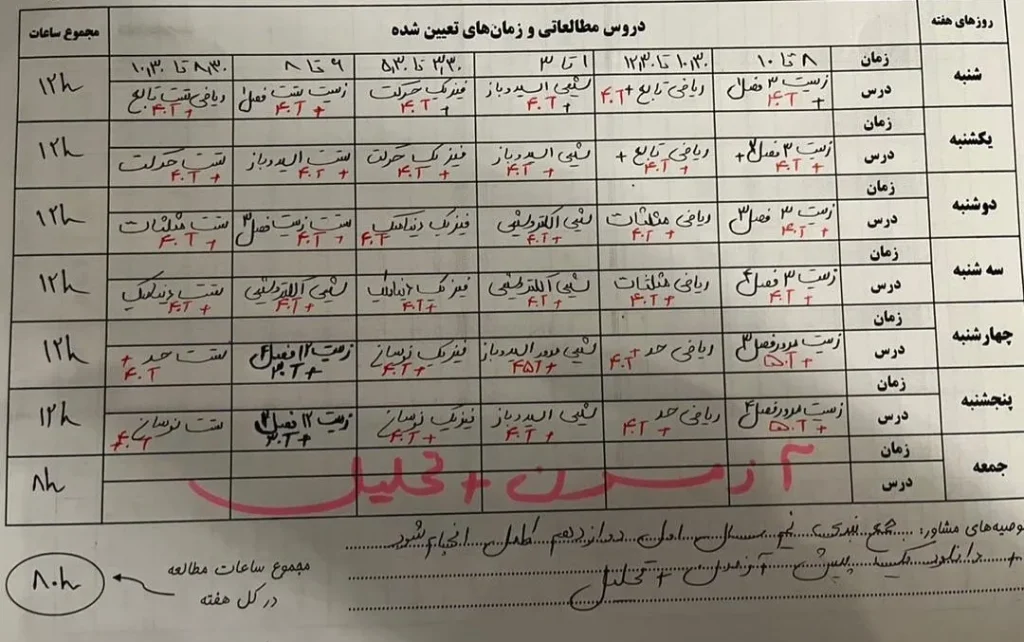 روزهای هفته دروس مطالعاتی و زمان‌های تعیین شده مجموع ساعات
شنبه زمان ۸ تا ۱۰ ۱۰,۳۰ تا ۱۲,۳۰ ۱ تا ۳ ۳,۳۰ تا ۵,۳۰ ۶ تا ۸ ۸,۳۰ تا ۱۰,۳۰ ۱۲h
درس زیست ۳ فصل ۱ + ۴۰T ریاضی تابع + ۴۰T شیمی اسیدوباز + ۴۰T فیزیک حرکت + ۴۰T زیست تست فصل ۱ + ۴۰T ریاضی تست تابع + ۴۰T
یکشنبه زمان ۱۲h
درس زیست ۳ فصل ۲ + ۴۰T ریاضی تابع + ۴۰T شیمی اسیدوباز + ۴۰T فیزیک حرکت + ۴۰T تست اسیدوباز + ۴۰T تست حرکت + ۴۰T
دوشنبه زمان ۱۲h
درس زیست ۳ فصل ۳ + ۴۰T ریاضی مثلثات + ۴۰T شیمی الکتروشیمی + ۴۰T فیزیک دینامیک + ۴۰T تست زیست فصل ۳ + ۴۰T تست مثلثات + ۴۰T
سه شنبه زمان ۱۲h
درس زیست ۳ فصل ۴ + ۴۰T ریاضی مثلثات + ۴۰T شیمی الکتروشیمی + ۴۰T فیزیک دینامیک + ۴۰T شیمی الکتروشیمی + ۴۰T تست دینامیک + ۴۰T
چهارشنبه زمان ۱۲h
درس زیست مرور فصل ۳ + ۵۰T ریاضی حد + ۴۰T شیمی مرور اسیدوباز + ۴۵T فیزیک نوسان + ۴۰T زیست ۱۲ فصل ۴ + ۳۰T تست حد + ۴۰T
پنجشنبه زمان ۱۲h
درس زیست مرور فصل ۴ + ۵۰T ریاضی حد + ۴۰T شیمی اسیدوباز + ۴۰T فیزیک نوسان + ۴۰T زیست ۱۲ فصل ۲ + ۳۰T تست نوسان + ۴۰T
جمعه زمان آزمون + تحلیل ۸h
درس
توصیه‌های مشاور: جمع بندی نیم سال اول دوازدهم کامل انجام شود
+ دانلود یک پیش آزمون + تحلیل
مجموع ساعات مطالعه
در کل هفته
۸۰h